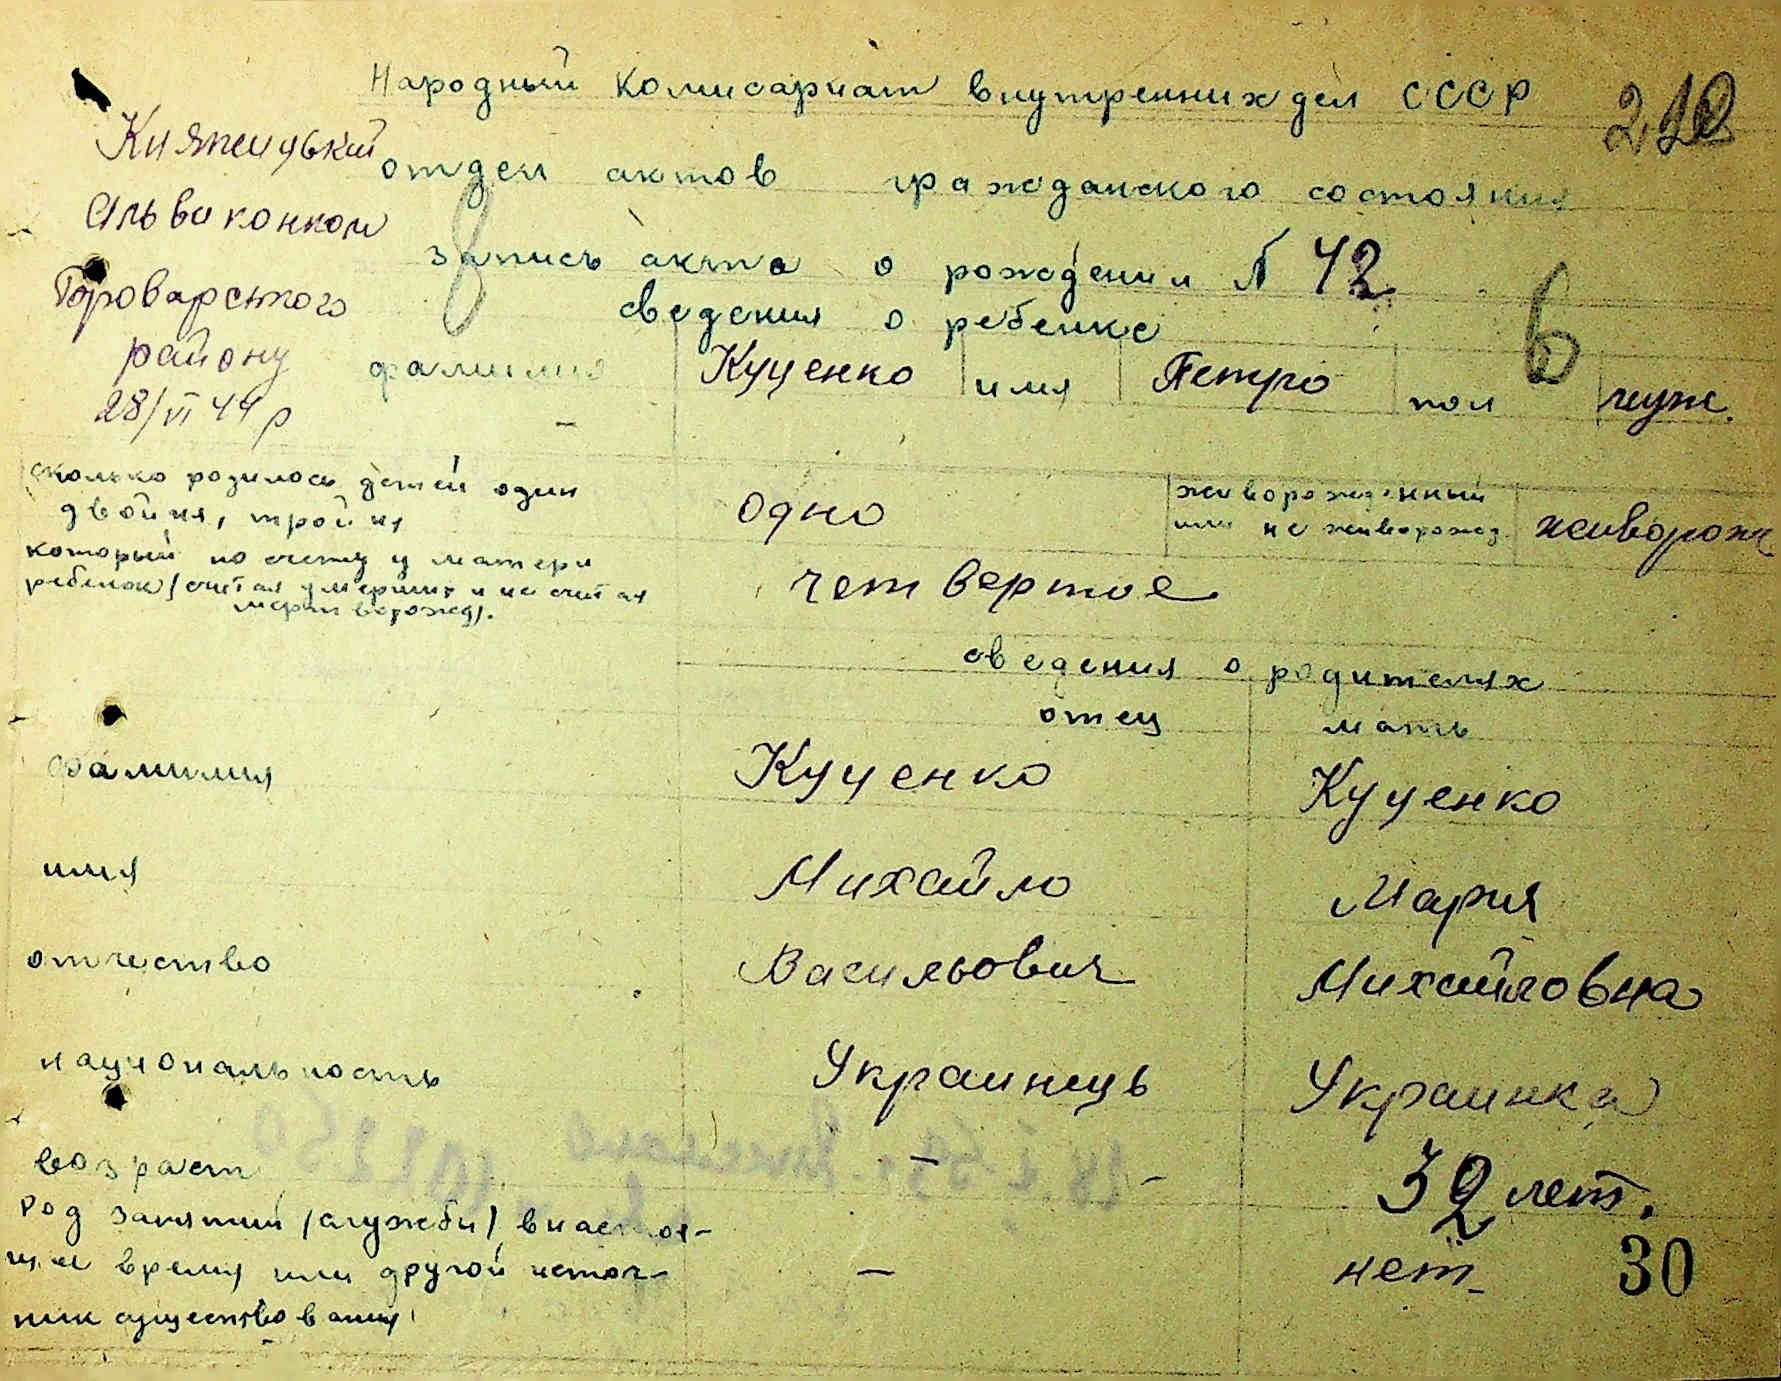 Народный Комисариат внутренних дел СССР
210
отдел актов гражданского состояния
Княжицький
Сільвиконком
Броварського
району
28/VI 44 р
запись акта о рождении № 42
сведения о ребенке
фамилия Куценко имя Петро пол муж.
сколько родилось детей один
двойня, тройня
одно
живорожденный
или не живорожд.
живорож
который по счету у матери
ребенок (считая умерших и не считая
мертворожд).
четвертое
сведения о родителях
отец мать
фамилия Куценко Куценко
имя Михайло Мария
отчество Васильович Михайловна
национальность Украинець Украинка
возраст – 32 лет.
род занятий (службы) в настоя-
щее время или другой источ-
ник существования
– нет
30